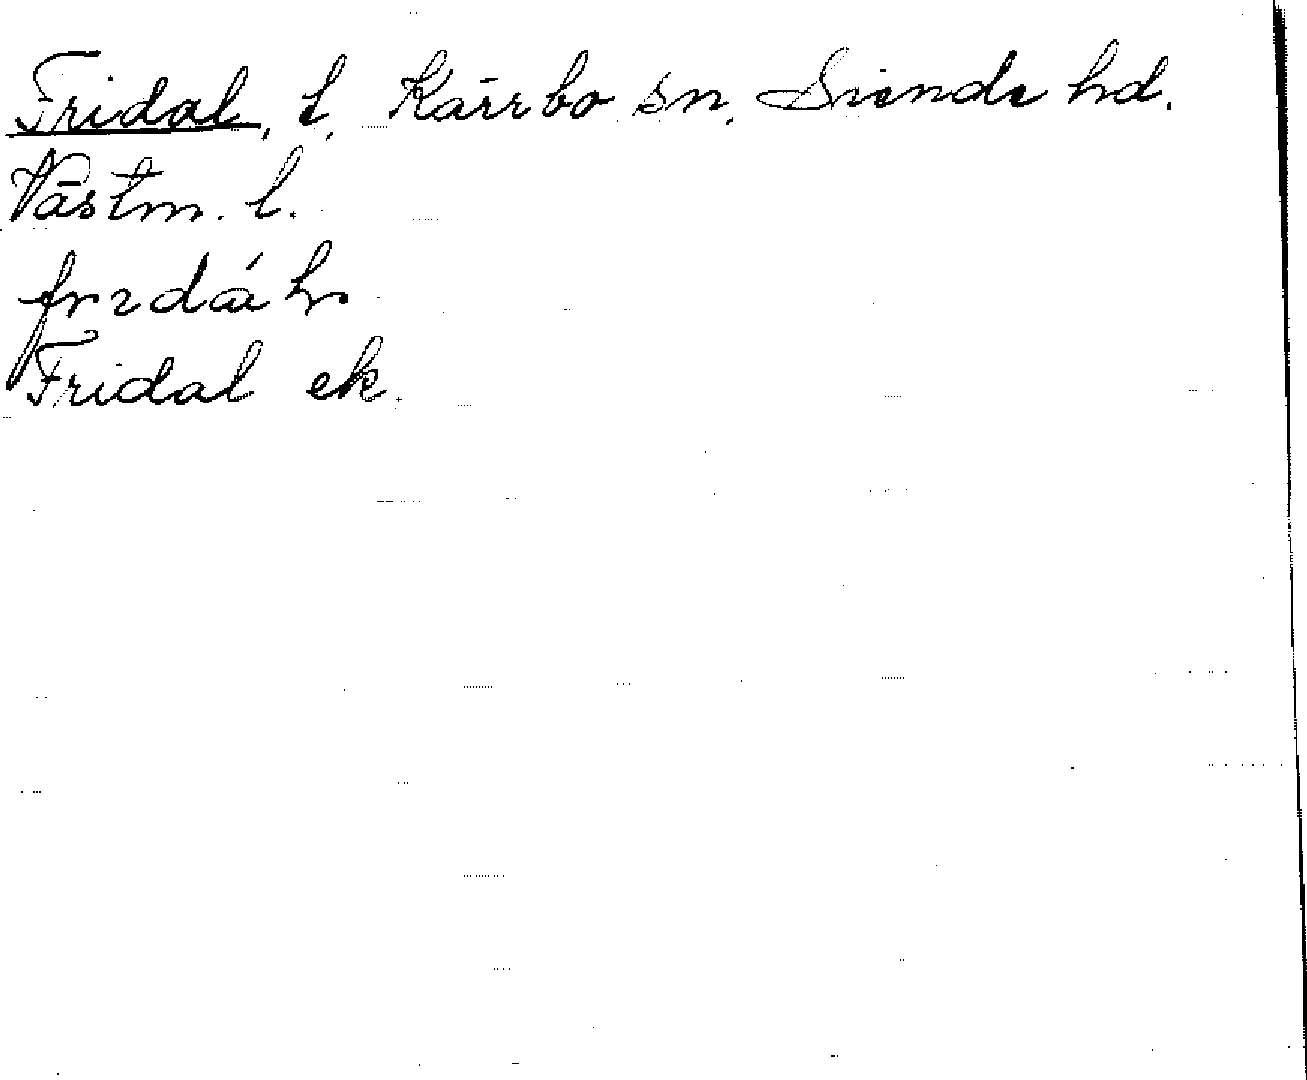 Fridal, t, Kärrbo sn, Siende hd.
Västm. l.
Fridal ek.